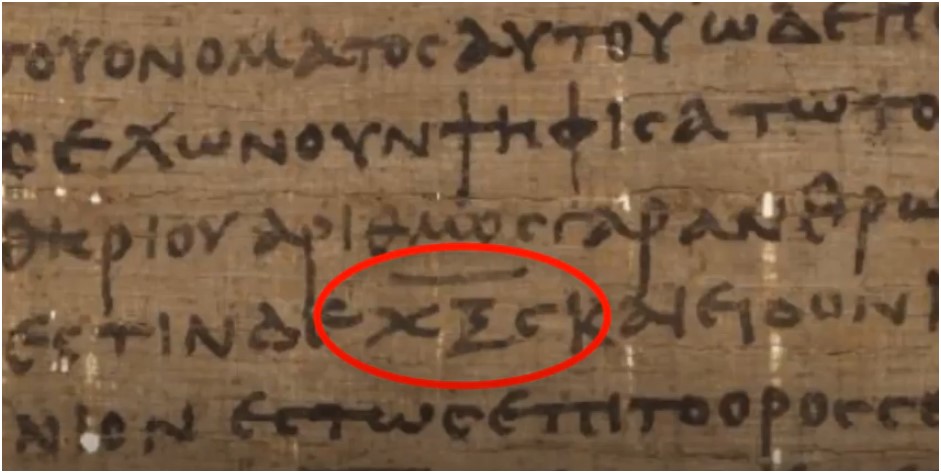 ΤΟΥΟΝΟΜΑΤΟϹΑΥΤΟΥΩΔΕ
ϹΕΧΩΝΟΥΝΨΗΦΙϹΑΤΩΤΟ
ΘΗΡΙΟΥΑΡΙΘΜΟϹΓΑΡΑΝΘΡΩ
ΕϹΤΙΝΔΕΧΞϚΚΑΙΕΙΔΟΝ
ΝΙΟΝ ΕϹΤΩϹΕΠΙΤΟΟΡΟϹϹΕ